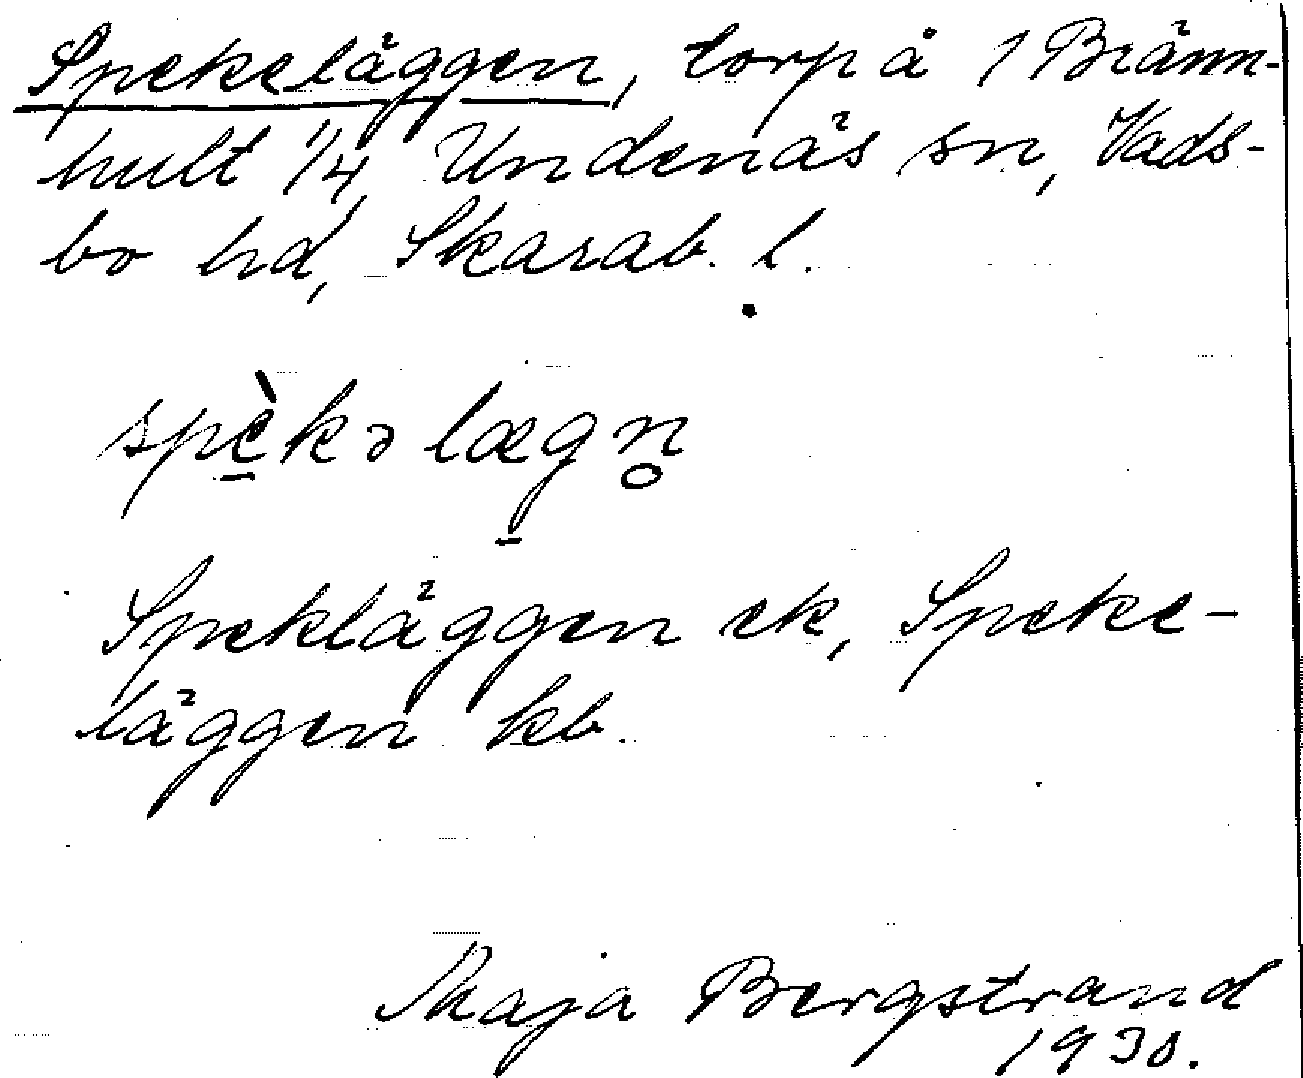 Spekeläggen, torp å 1 Bränn-
hult 1/4, Undenäs sn, Vads-
bo hd, Skarab. l.
spè̱kə læg̱n̥
Spekläggen ek, Speke-
läggen kb.
Maja Bergstrand
1930.